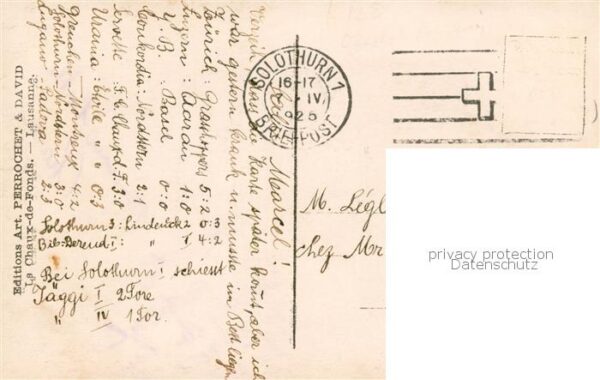 Marcel!
Verzeih, dass die Karte später kommt, aber ich
war gestern krank u. musste im Bett liegen
Zürich : Grashoppers 5:2
Luzern : Aarau 1:0
Y.B. Basel 0:0
Concordia : Nordstern 2:1
Servette : F.C. Chauxd.F. 3:0
Urania : Etoile " " 0:3
Grenchen : Montreux 4:2
Solothurn : Nordstern 3:0
Lugano : Padova 2:3
Solothurn 3 : Lindeneck 2 0:3
Bib-Berend I : " I 4:2
Bei Solothurn I schiesst
Jäggi I 2 Tore
" IV 1 Tor.
Editions Art. PERROCHET & DAVID
La Chaux-de-Fonds. — Lausanne
SOLOTHURN 1
16-17
IV.
BRIEFPOST
M. Légl
chez Mr
privacy protection
Datenschutz